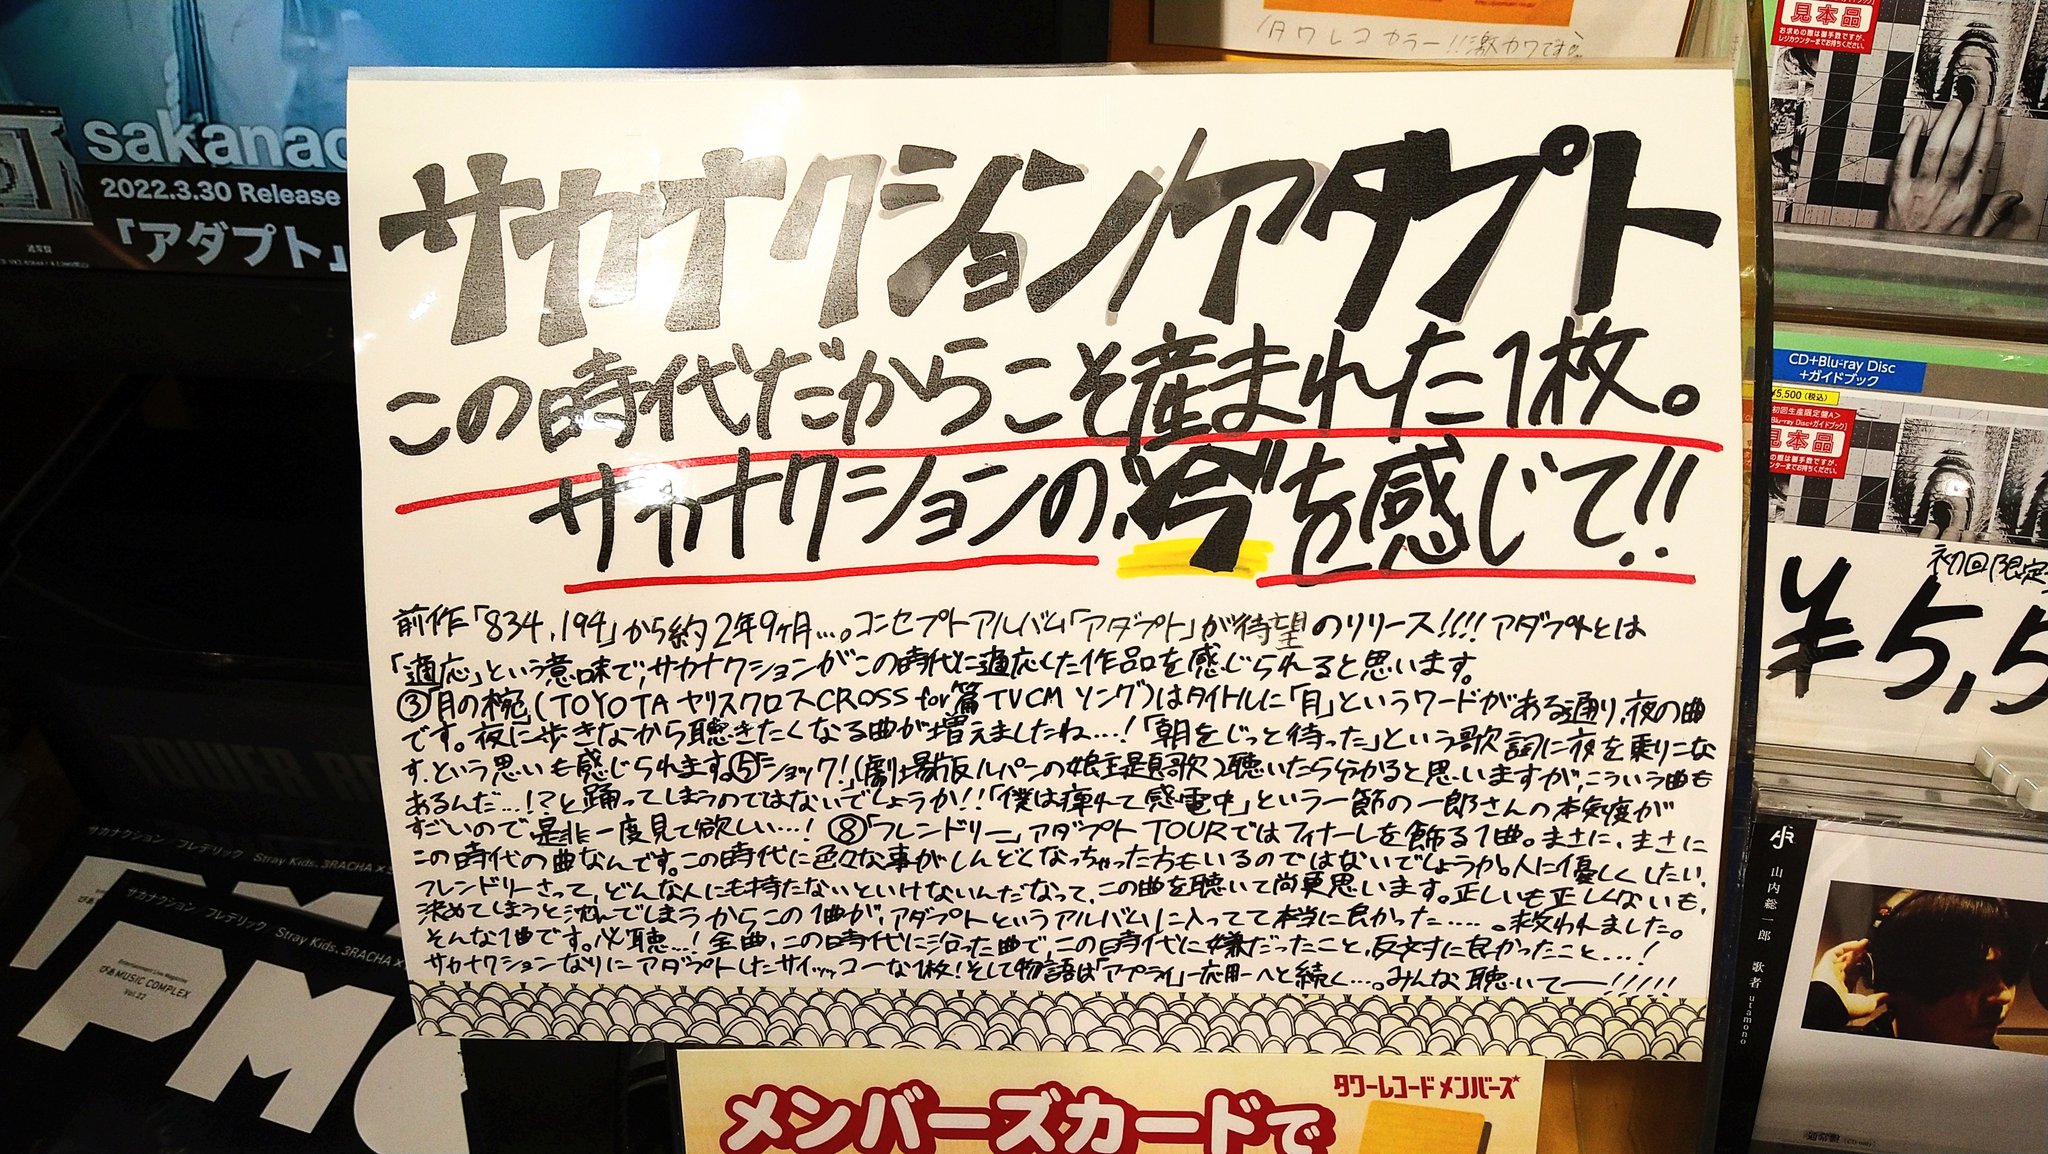 sakanac
2022.3.30 Release
「アダプト」
1タワレコカラー!!激カワです。
サカナクション/アダプト
この時代だからこそ産まれた1枚。
サカナクションの"今"を感じて!!
前作「834.194」から約2年9ヶ月…。コンセプトアルバム「アダプト」が待望のリリース!!!!アダプトとは
「適応」という意味で、サカナクションがこの時代に適応した作品を感じられると思います。
③「月の椀」(TOYOTA ヤリスクロスCROSS for篇TVCMソング)はタイトルに「月」というワードがある通り、夜の曲
です。夜に歩きながら聴きたくなる曲が増えましたね…!「朝をじっと待った」という歌詞に夜を乗りこな
す、という思いも感じられます。⑤「ショック!」(劇場版ルパンの娘主題歌)聴いたら分かると思いますが、こういう曲も
あるんだ…!?と踊ってしまうのではないでしょうか!!「僕は痺れて感電中」という一節の一郎さんの本気度が
すごいので是非一度見て欲しい…!⑧「フレンドリー」アダプトTOURではフィナーレを飾る1曲。まさに、まさに
この時代の曲なんです。この時代に色々な事がしんどくなっちゃった方もいるのではないでしょうか。人に優しくしたい、
フレンドリーさって、どんな人にも持たないといけないんだなって、この曲を聴いて尚更思います。正しいも正しくないも、
決めてしまうと沈んでしまうからこの1曲が、アダプトというアルバムに入ってて本当に良かった……。救われました。
そんな1曲です。必聴…!全曲、この時代に沿った曲で、この時代に嫌だったこと、反対に良かったこと…!
サカナクションなりにアダプトしたサイッッコーな1枚!そして物語は「アプライ」-応用-へと続く…。みんな聴いてー!!!!!
タワーレコードメンバーズ
メンバーズカードで
サカナクション フレデリック Stray Kids. 3RACHA x
サカナクション フレデリック Stray Kids. 3RACHA x
Entertainment Live Magazine
ぴあMUSIC COMPLEX
Vol.22
PMC
見本品
お求めの際は番手数ですが、
レジカウンターまでお持ちください。
CD+Blu-ray Disc
+ガイドブック
¥5,500(税込)
初回生産限定盤A>
Blu-ray Disc+ガイドブック]
見本品
初回限定
¥5,5
山内総一郎 歌者 utamono